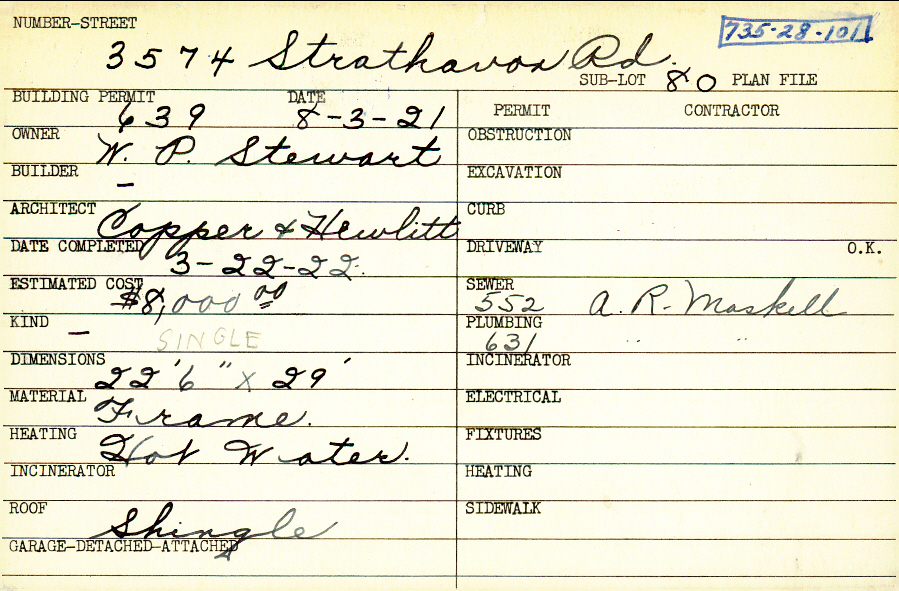 NUMBER-STREET
735-28-101
3574 Strathavon Rd.
SUB-LOT 80 PLAN FILE
BUILDING PERMIT 639 DATE 8-3-21
PERMIT CONTRACTOR
OWNER W. P. Stewart
OBSTRUCTION
BUILDER —
EXCAVATION
ARCHITECT Copper & Hewlitt
CURB
DATE COMPLETED 3-22-22.
DRIVEWAY O.K.
ESTIMATED COST $8,000 00
SEWER 552 A. R. Maskell
KIND — SINGLE
PLUMBING 631 " "
DIMENSIONS 22'6" x 29'
INCINERATOR
MATERIAL Frame.
ELECTRICAL
HEATING Hot Water.
FIXTURES
INCINERATOR
HEATING
ROOF Shingle
SIDEWALK
GARAGE-DETACHED-ATTACHED